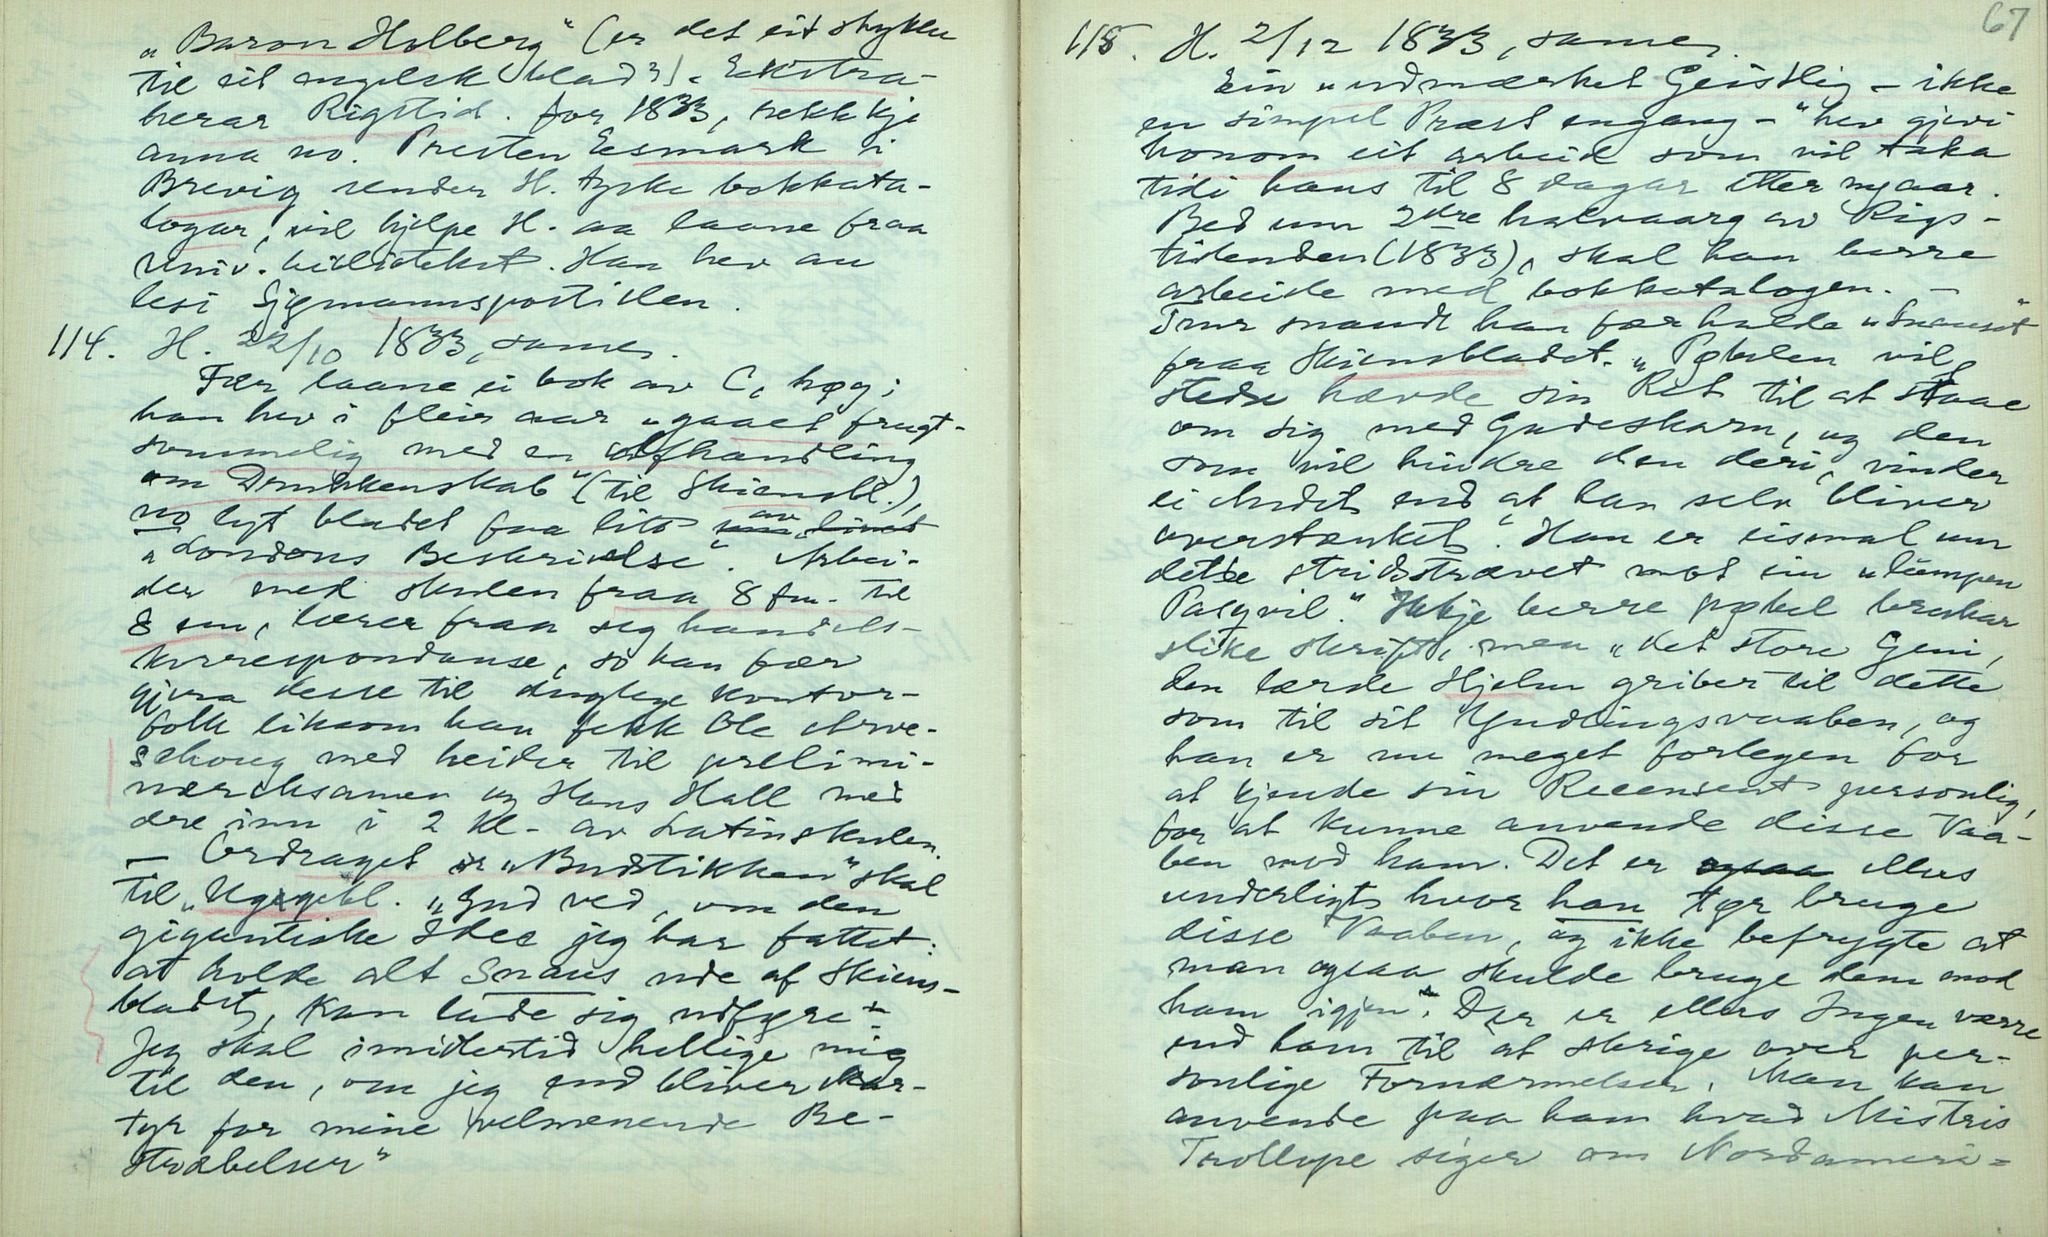 „Baron Holberg“ (er det eit stykke
til eit engelsk blad?). Ekstra-
herar Rigstid. for 1833, rekk kje
anna no. Presten Esmark i
Brevig sender H. tyske bokkata-
logar, vil hjelpe H. aa laane fraa
Univ. biblioteket. Han hev au
lesi Sjømannspostillen.
114. H. 22/10 1833, sames.
Fær laane ei bok av C, høg;
han hev i fleir aar „gaaet frugt-
sommelig med en Afhandling
om Drukkenskab“ (til Skiensbl.),
no lyt bladet faa litt av
„Londons Beskrivelse“. Arbei-
der med skulen fraa 8 fm. til
8 em, lærer fraa seg handels-
korrespondanse, so han fær
gjera desse til duglege kontor-
folk liksom han fekk Ole Arve-
schoug med heider til prelimi-
næreksamen og Hans Hall med
dre inn i 2 kl. av Latinskulen.
– Ordraget i „Budstikken“ skal
til „Ugegebl. „Gud ved, om den
gigantiske Idee jeg har fattet:
at holde alt Snaus ude af Skiens-
bladet, kan lade sig udføre –
Jeg skal imidlertid hellige mig
til den, om jeg end bliver Mar-
tyr for mine velmenende Be-
stræbelser“
67
115. H. 2/12 1833, sames.
Ein „udmærket Geistlig – ikke
en simpel Præst engang –“ hev gjevi
honom eit arbeid som vil taka
tidi hans til 8 dagar etter nyaar.
Bed um 2dre halvaarg av Rigs-
tidenden (1833), skal han berre
arbeide med bokkatalogen. –
Trur snaudt han fær halde „Snauset“
fraa Skiensbladet. „Pøbelen vil
stedse hævde sin Ret til at staae
om sig med Gadeskarn, og den
som vil hindre den deri, vinder
ei Andet end at han selv bliver
overstænket“. Han er eismal um
dette stridstrævet mot ein „lumpen
Pasqvil.“ Ikkje berre pøbel brukar
slike skrift, men „det store Geni,
den lærde Hjelm griber til dette
som til sit Yndlingsvaaben, og
han er nu meget forlegen for
at kjende sin Recensent personlig,
for at kunne anvende disse Vaa-
ben mod ham. Det er ellers
underligt hvor han tør bruge
disse Vaaben, og ikke befrygte at
man ogsaa skulde bruge dem mod
ham igjen“. Der er ellers Ingen værre
end ham til at skrige over per-
sonlige Fornærmelser. Man kan
anvende paa ham hvad Mistris
Trollope siger om Nordameri-